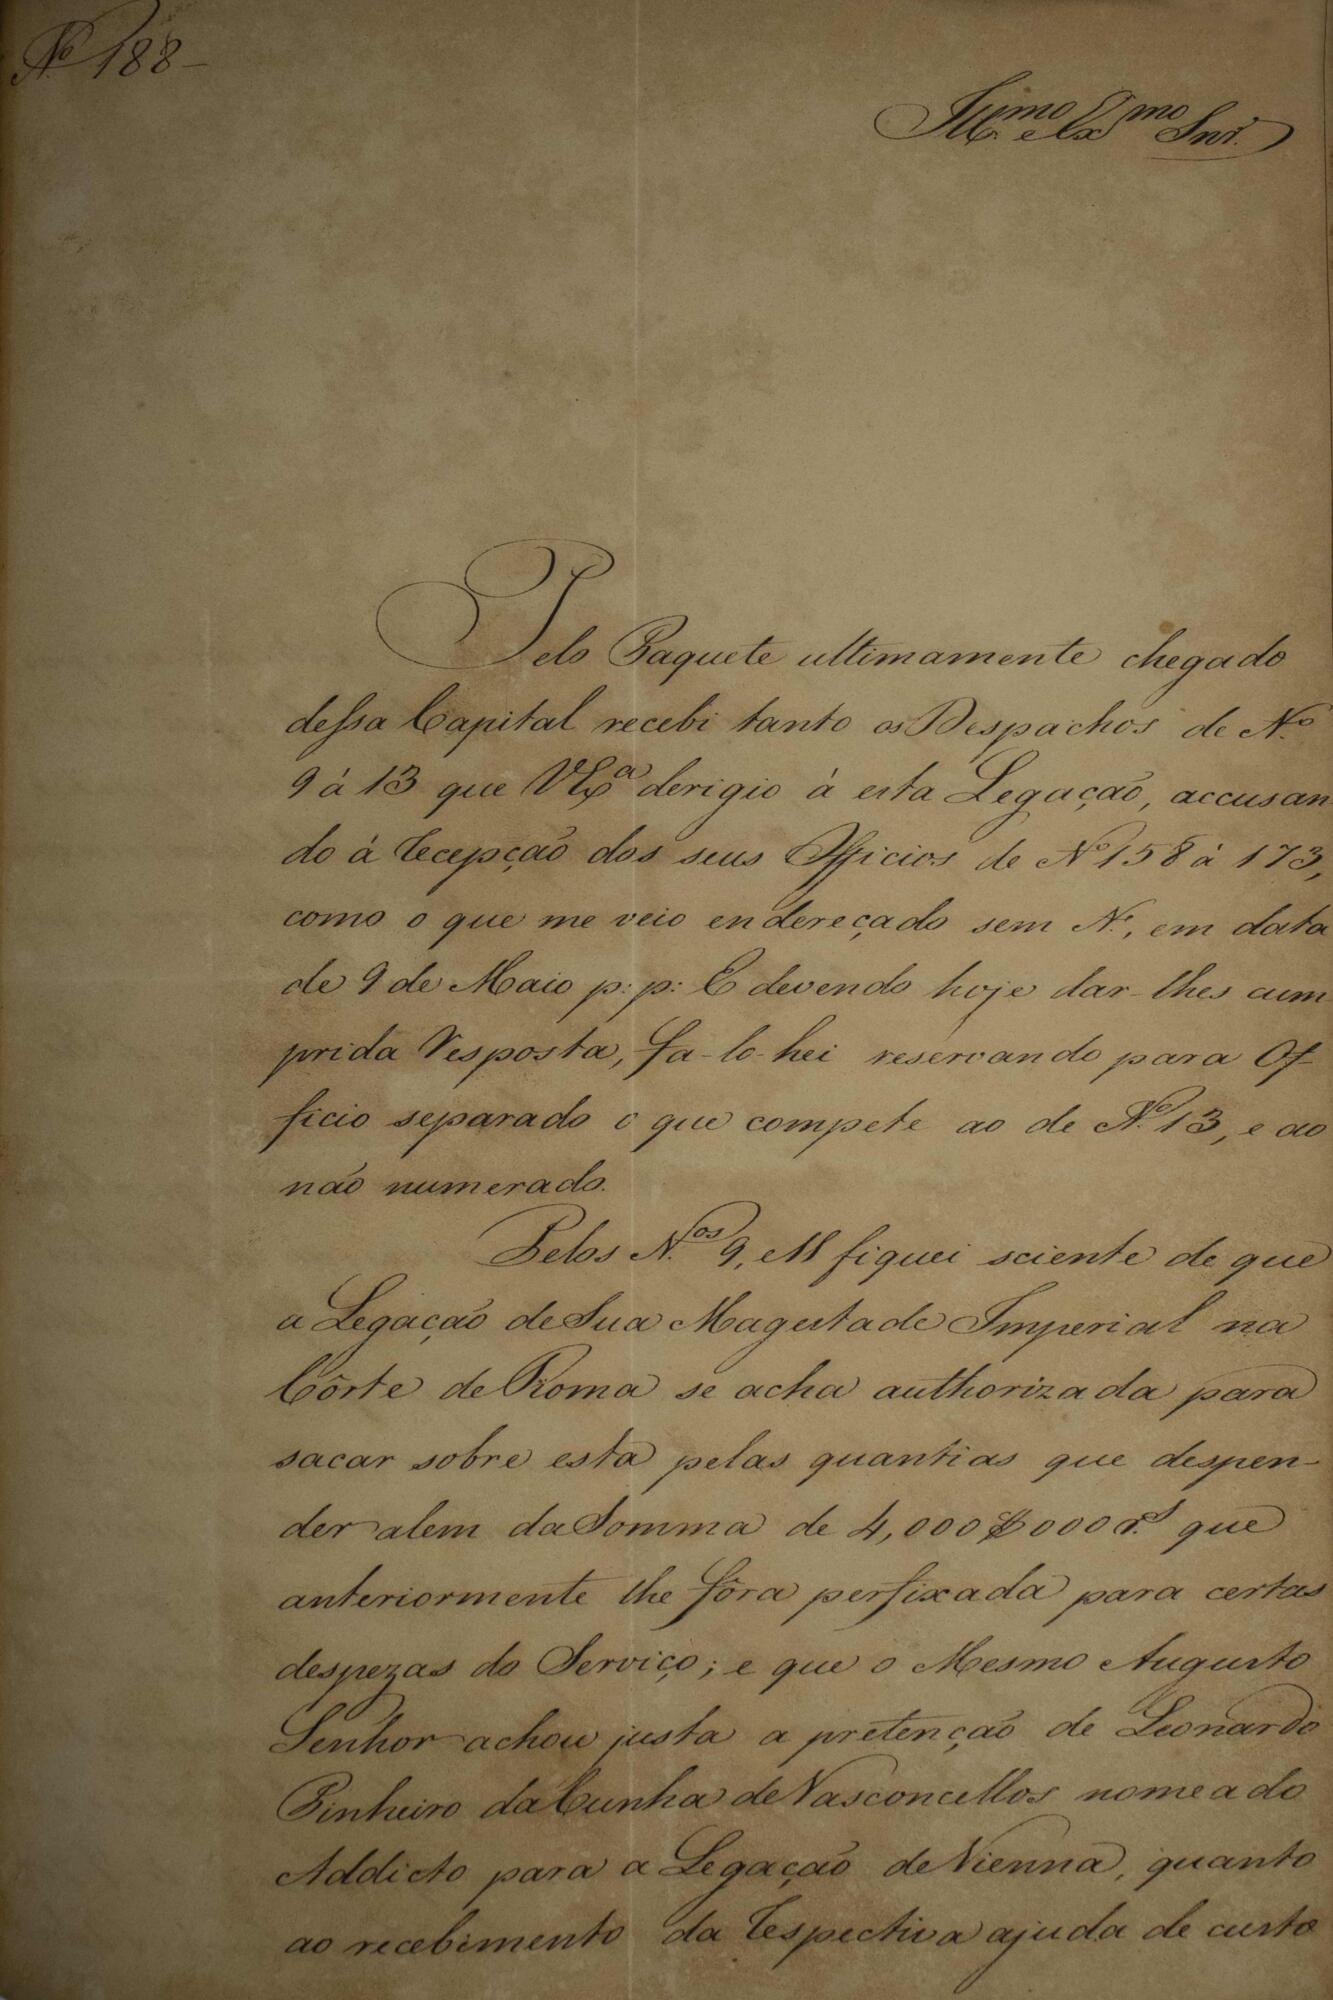 Nº 188 –
Illmo e Exmo Snr.
Pelo Paquete ultimamente chegado
dessa Capital recebi tanto os Despachos de Nº
9 à 13 que VExª derigio à esta Legação, accusan
do à recepção dos seus Officios de Nº 158 à 173,
como o que me veio endereçado sem Nº, em data
de 9 de Maio p: p: E devendo hoje dar-lhes cum
prida resposta, fa-lo-hei reservando para Of-
ficio separado o que compete ao de Nº 13, e ao
não numerado.
Pelos N.os 9, e 11 fiquei sciente de que
a Legação de Sua Magestade Imperial na
Côrte de Roma se acha authorizada para
sacar sobre esta pelas quantias que despen-
der alem da Somma de 4,000$000 rs. que
anteriormente lhe fôra perfixada para certas
despezas do Serviço; e que o Mesmo Augusto
Senhor achou justa a pretenção de Leonardo
Pinheiro da Cunha de Vasconcellos nomeado
Addicto para a Legação de Vienna, quanto
ao recebimento da respectiva ajuda de custo